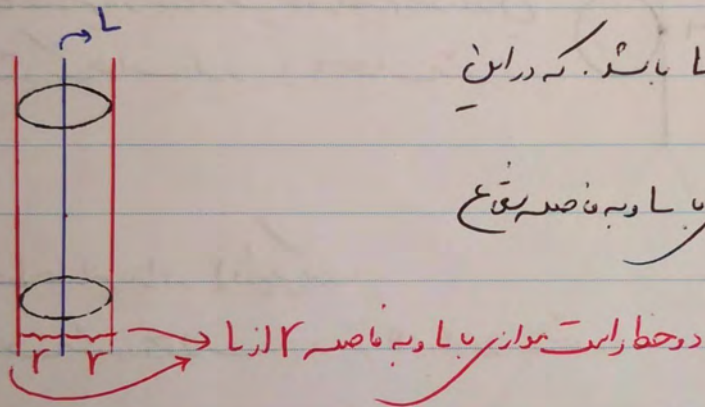 L
L باشد. که در این
با L و به فاصله شعاع
دو خط راست موازی با L و به فاصله r از L
r r